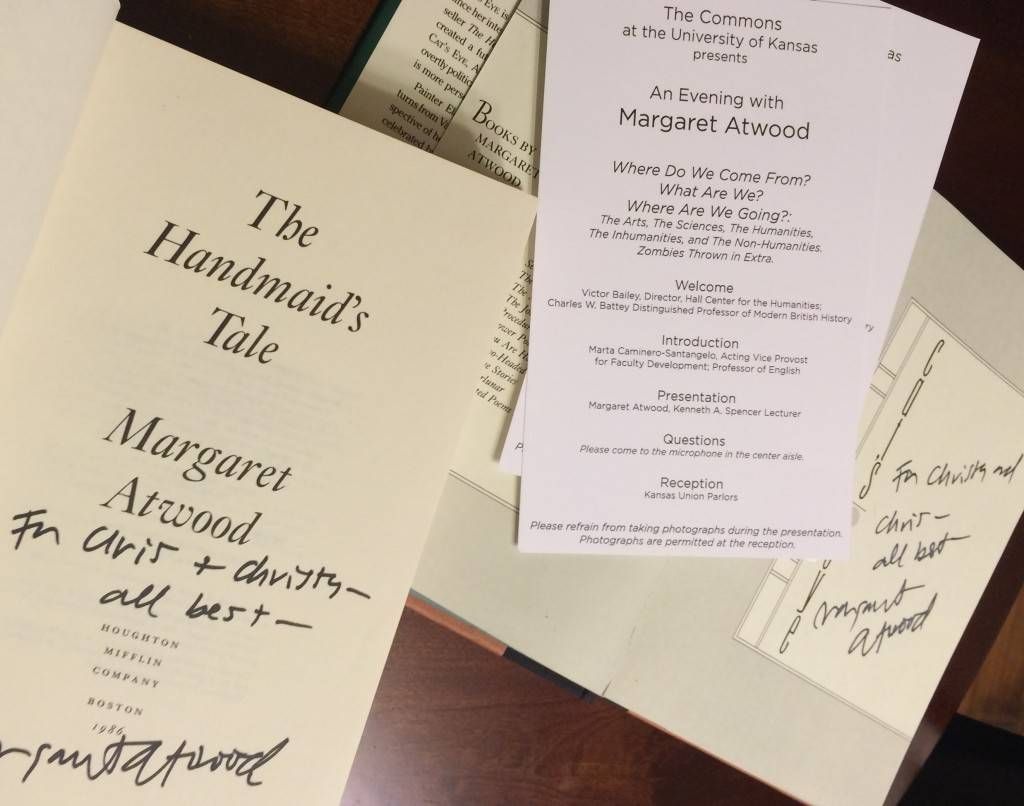 The
Handmaid's
Tale
Margaret
Atwood
For Chris + Christy—
all best—
HOUGHTON
MIFFLIN
COMPANY
BOSTON
1986
Atwood
CAT'S EYE
is more pers
Painter El
turns from V
spective of
celebrated
BOOKS BY
MARGARET
ATWOOD
The Commons
at the University of Kansas
presents
An Evening with
Margaret Atwood
Where Do We Come From?
What Are We?
Where Are We Going?:
The Arts, The Sciences, The Humanities,
The Inhumanities, and The Non-Humanities.
Zombies Thrown in Extra.
Welcome
Victor Bailey, Director, Hall Center for the Humanities;
Charles W. Battey Distinguished Professor of Modern British History
Introduction
Marta Caminero-Santangelo, Acting Vice Provost
for Faculty Development; Professor of English
Presentation
Margaret Atwood, Kenneth A. Spencer Lecturer
Questions
Please come to the microphone in the center aisle.
Reception
Kansas Union Parlors
Please refrain from taking photographs during the presentation.
Photographs are permitted at the reception.
as
ry
For Christy and
Chris—
all best—
Margaret
Atwood